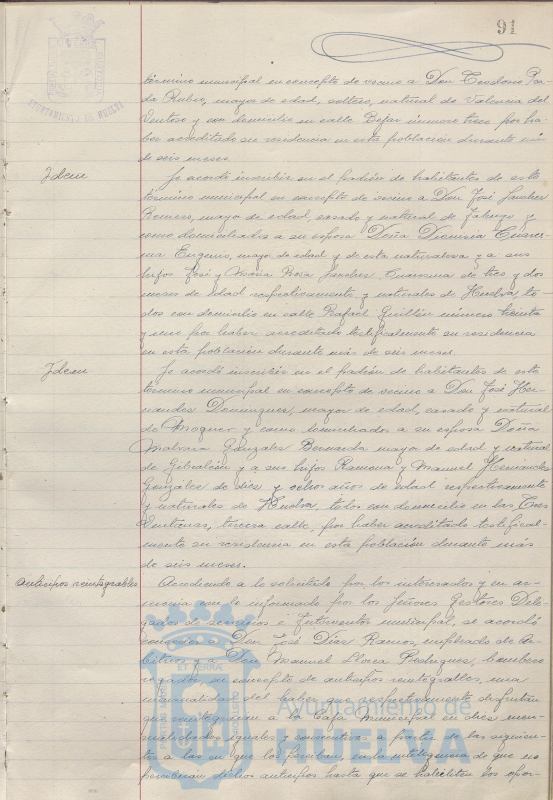 91
AYUNTAMIENTO DE HUELVA
término municipal en concepto de vecino a Don Teodoro Par-
do Rubio, mayor de edad, soltero, natural de Valencia del
Ventoso y con domicilio en calle Bejar número trece por ha-
ber acreditado su residencia en esta población durante más
de seis meses.
Idem
Se acordó inscribir en el padrón de habitantes de este
término municipal en concepto de vecino a Don José Sanchez
Romero, mayor de edad, casado y natural de Jabugo y
como domiciliados a su esposa Doña Dionisia Cuares-
ma Eugenio, mayor de edad y de esta naturaleza y a sus
hijos José y María Rosa Sanchez Cuaresma de tres y dos
meses de edad respectivamente y naturales de Huelva to-
dos con domicilio en calle Rafael Guillén número treinta
y uno por haber acreditado testificalmente su residencia
en esta población durante más de seis meses.
Idem
Se acordó inscribir en el padrón de habitantes de este
término municipal en concepto de vecino a Don José Her-
nandez Dominguez, mayor de edad, casado y natural
de Moguer y como domiciliados a su esposa Doña
Gonzalez Bernarda mayor de edad y natural
de Gibraleón y a sus hijos Ramona y Manuel Hernandez
González de diez y ocho años de edad respectivamente
y naturales de Huelva, todos con domicilio en las Tres
Ventanas, tercera calle, por haber acreditado testifical-
mente su residencia en esta población durante más
de seis meses.
Anticipos reintegrables
Accediendo a lo solicitado por los interesados y en ar-
monía con lo informado por los Señores Gestores Dele-
gados de servicios e Interventor municipal, se acordó
conceder a Don José Díaz Ramos, empleado de Ar-
bitrios y a Don Manuel Llorca Rodriguez, bombero
regador, en concepto de anticipos reintegrables, una
mensualidad del haber que respectivamente disfrutan
que reintegrarán a la Caja Municipal en diez men-
sualidades iguales y consecutivas a partir de las siguien-
tes a las en que los perciban, en la inteligencia de que no
percibirán dichos anticipos hasta que se habiliten los opor-
Ayuntamiento de
HUELVA